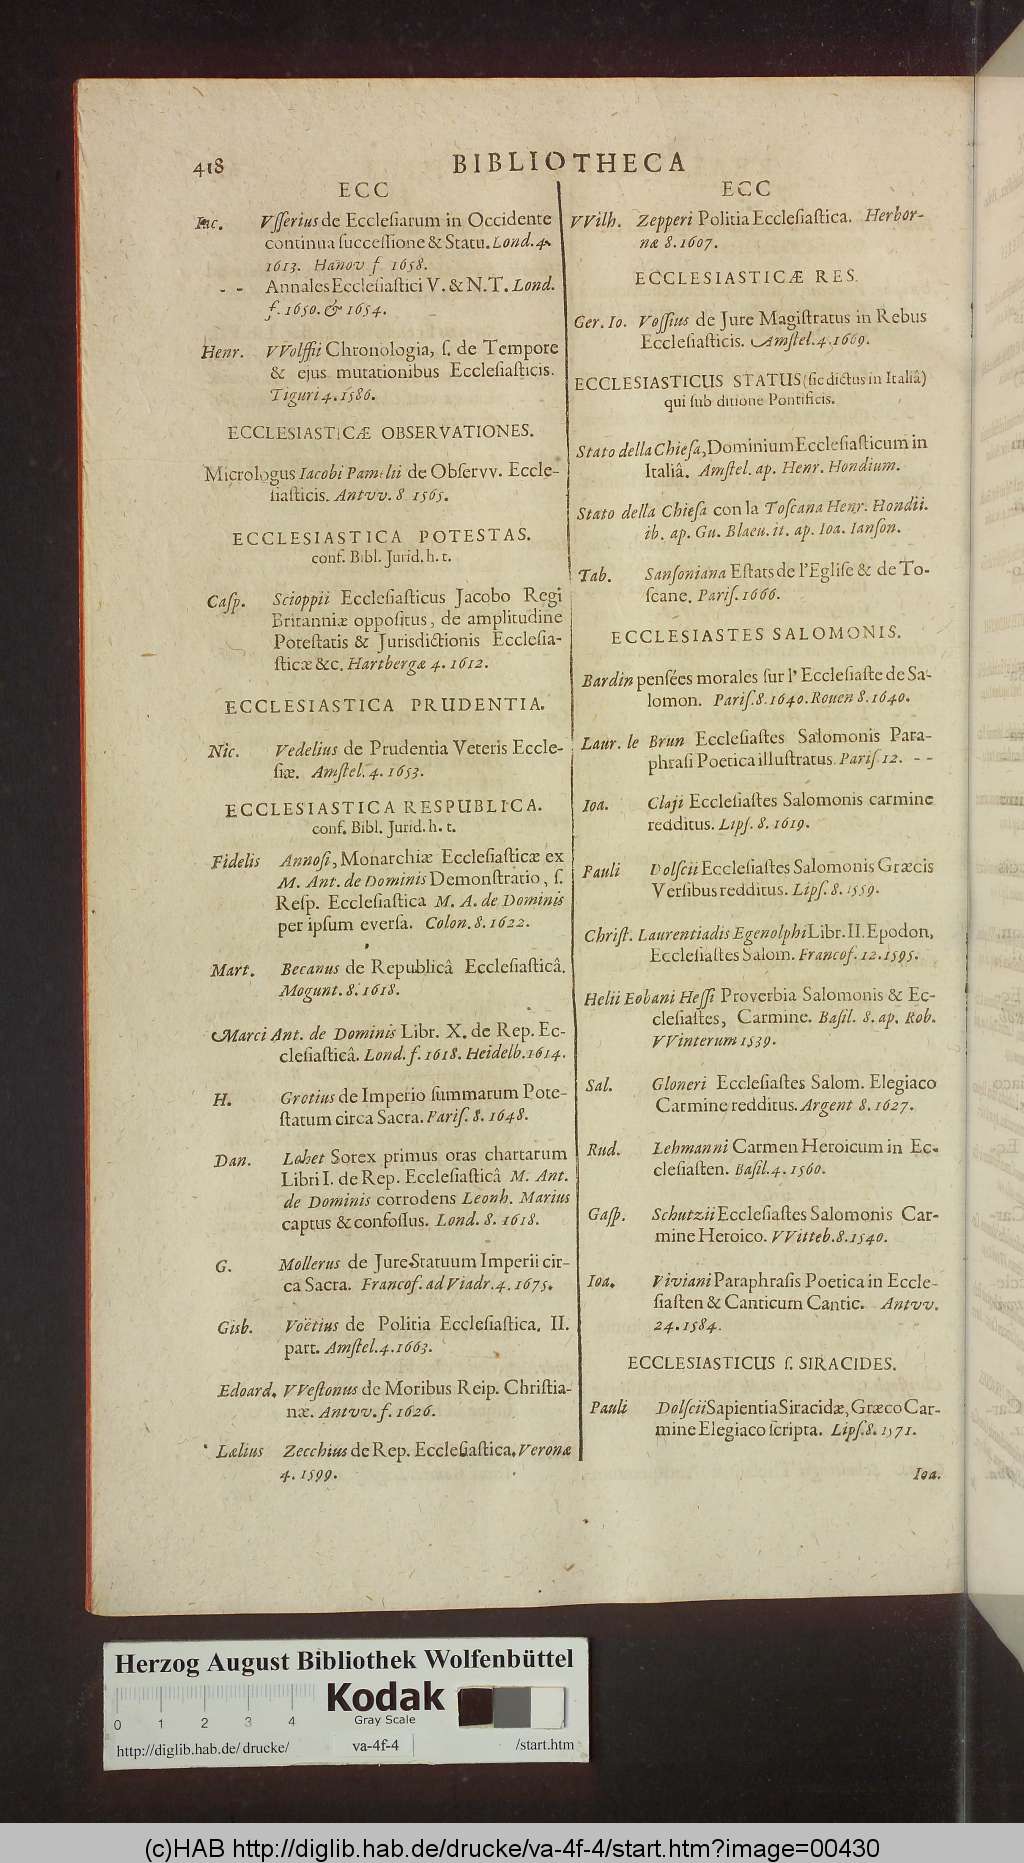 418
BIBLIOTHECA
ECC
Iac. Vſſerius de Eccleſiarum in Occidente
continua ſucceſſione & Statu. Lond. 4.
1613. Hanov f. 1658.
- - Annales Eccleſiaſtici V. & N. T. Lond.
f. 1650. & 1654.
Henr. VVolffii Chronologia, ſ. de Tempore
& ejus mutationibus Eccleſiaſticis.
Tiguri 4. 1586.
ECCLESIASTICÆ OBSERVATIONES.
Micrologus Iacobi Pamelii de Obſervv. Eccle-
ſiaſticis. Antvv. 8 1565.
ECCLESIASTICA POTESTAS.
conf. Bibl. Jurid. h. t.
Caſp. Scioppii Eccleſiaſticus Jacobo Regi
Britanniæ oppoſitus, de amplitudine
Poteſtatis & Jurisdictionis Eccleſia-
ſticæ &c. Hartbergæ 4. 1612.
ECCLESIASTICA PRUDENTIA.
Nic. Vedelius de Prudentia Veteris Eccle-
ſiæ. Amſtel. 4. 1653.
ECCLESIASTICA RESPUBLICA.
conf. Bibl. Jurid. h. t.
Fidelis Annoſi, Monarchiæ Eccleſiaſticæ ex
M. Ant. de Dominis Demonſtratio, ſ.
Reſp. Eccleſiaſtica M. A. de Dominis
per ipſum everſa. Colon. 8. 1622.
Mart. Becanus de Republicâ Eccleſiaſticâ.
Mogunt. 8. 1618.
Marci Ant. de Dominis Libr. X. de Rep. Ec-
cleſiaſticâ. Lond. f. 1618. Heidelb. 1614.
H. Grotius de Imperio ſummarum Pote-
ſtatum circa Sacra. Pariſ. 8. 1648.
Dan. Lohet Sorex primus oras chartarum
Libri I. de Rep. Eccleſiaſticâ M. Ant.
de Dominis corrodens Leonh. Marius
captus & confoſſus. Lond. 8. 1618.
G. Mollerus de Jure Statuum Imperii cir-
ca Sacra. Francof. ad Viadr. 4. 1675.
Gisb. Voëtius de Politia Eccleſiaſtica. II.
part. Amſtel. 4. 1663.
Edoard. VVeſtonus de Moribus Reip. Chriſtia-
næ. Antvv. f. 1626.
Lælius Zecchius de Rep. Eccleſiaſtica. Veronæ
4. 1599.
ECC
VVilh. Zepperi Politia Eccleſiaſtica. Herbor-
næ 8. 1607.
ECCLESIASTICÆ RES.
Ger. Io. Voſſius de Jure Magiſtratus in Rebus
Eccleſiaſticis. Amſtel. 4. 1669.
ECCLESIASTICUS STATUS (ſic dictus in Italiâ)
qui ſub ditione Pontificis.
Stato della Chieſa, Dominium Eccleſiaſticum in
Italiâ. Amſtel. ap. Henr. Hondium.
Stato della Chieſa con la Toſcana Henr. Hondii.
ib. ap. Gu. Blaeu. it. ap. Ioa. Ianſon.
Tab. Sanſoniana Eſtats de l'Egliſe & de To-
ſcane. Pariſ. 1666.
ECCLESIASTES SALOMONIS.
Bardin penſées morales ſur l' Eccleſiaſte de Sa-
lomon. Pariſ. 8. 1640. Rouen 8. 1640.
Laur. le Brun Eccleſiaſtes Salomonis Para-
phraſi Poetica illuſtratus. Pariſ 12. - -
Ioa. Claji Eccleſiaſtes Salomonis carmine
redditus. Lipſ. 8. 1619.
Pauli Dolſcii Eccleſiaſtes Salomonis Græcis
Verſibus redditus. Lipſ. 8. 1559.
Chriſt. Laurentiadis Egenolphi Libr. II. Epodon,
Eccleſiaſtes Salom. Francof. 12. 1595.
Helii Eobani Heſſi Proverbia Salomonis & Ec-
cleſiaſtes, Carmine. Baſil. 8. ap. Rob.
VVinterum 1539.
Sal. Gloneri Eccleſiaſtes Salom. Elegiaco
Carmine redditus. Argent 8. 1627.
Rud. Lehmanni Carmen Heroicum in Ec-
cleſiaſten. Baſil. 4. 1560.
Gaſp. Schutzii Eccleſiaſtes Salomonis Car-
mine Heroico. VVitteb. 8. 1540.
Ioa. Viviani Paraphraſis Poetica in Eccle-
ſiaſten & Canticum Cantic. Antvv.
24. 1584.
ECCLESIASTICUS ſ. SIRACIDES.
Pauli Dolſcii Sapientia Siracidæ, Græco Car-
mine Elegiaco ſcripta. Lipſ. 8. 1571.
Ioa.
Herzog August Bibliothek Wolfenbüttel
Kodak
Gray Scale
0 1 2 3 4
http://diglib.hab.de/drucke/ va-4f-4 /start.htm
(c)HAB http://diglib.hab.de/drucke/va-4f-4/start.htm?image=00430